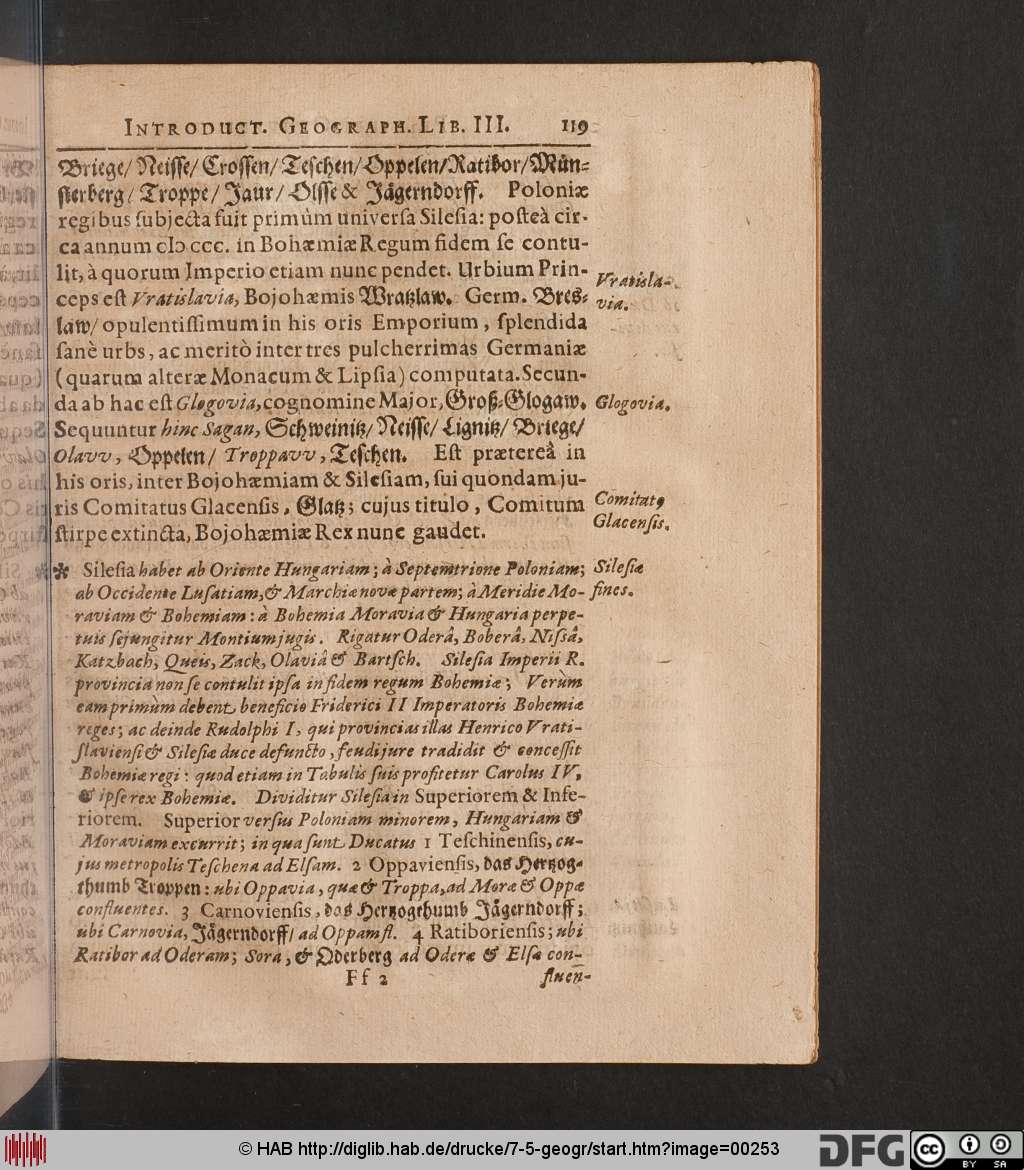 INTRODUCT. GEOGRAPH. LIB. III. 119
Briege/ Neisse/ Crossen/ Teschen/ Oppelen/ Ratibor/ Mün-
sterberg/ Troppe/ Jaur/ Olsse & Jägerndorff. Poloniæ
regibus ſubjecta fuit primùm univerſa Sileſia: poſteà cir-
ca annum cIↄ ccc. in Bohæmiæ Regum fidem ſe contu-
lit, à quorum Imperio etiam nunc pendet. Urbium Prin-
ceps eſt Vratislavia, Bojohæmis Wratzlaw. Germ. Bres-
law/ opulentiſſimum in his oris Emporium, ſplendida
ſanè urbs, ac meritò inter tres pulcherrimas Germaniæ
(quarum alteræ Monacum & Lipſia) computata. Secun-
da ab hac eſt Glogovia, cognomine Major, Groß-Glogaw.
Sequuntur hinc Sagan, Schweinitz/ Neisse/ Lignitz/ Briege/
Olavv, Oppelen/ Troppavv, Teschen. Eſt præterea in
his oris, inter Bojohæmiam & Sileſiam, ſui quondam ju-
ris Comitatus Glacenſis, Glatz; cujus titulo, Comitum
ſtirpe extincta, Bojohæmiæ Rex nunc gaudet.
Vratisla-
via.
Glogovia.
Comitatꝰ
Glacenſis.
✽ Sileſia habet ab Oriente Hungariam; à Septemtrione Poloniam;
ab Occidente Luſatiam, & Marchiæ novæ partem; à Meridie Mo-
raviam & Bohemiam: à Bohemia Moravia & Hungaria perpe-
tuis ſejungitur Montium jugis. Rigatur Oderâ, Boberâ, Niſsâ,
Katzbach, Queis, Zack, Olaviâ & Bartſch. Sileſia Imperii R.
provincia non ſe contulit ipſa in fidem regum Bohemiæ; Verùm
eam primùm debent beneficio Friderici II Imperatoris Bohemiæ
reges; ac deinde Rudolphi I, qui provincias illas Henrico Vrati-
ſlavienſi & Sileſiæ duce defuncto, feudi jure tradidit & conceſſit
Bohemiæ regi: quod etiam in Tabulis ſuis profitetur Carolus IV,
& ipſe rex Bohemiæ. Dividitur Sileſia in Superiorem & Infe-
riorem. Superior verſus Poloniam minorem, Hungariam &
Moraviam excurrit; in qua ſunt Ducatus 1 Teſchinenſis, cu-
jus metropolis Teſchena ad Elſam. 2 Oppavienſis, das Hertzog-
thumb Troppen: ubi Oppavia, quæ & Troppa, ad Moræ & Oppæ
confluentes. 3 Carnovienſis, das Hertzogthumb Jägerndorff;
ubi Carnovia, Jägerndorff/ ad Oppam fl. 4 Ratiborienſis; ubi
Ratibor ad Oderam; Sora, & Oderberg ad Oderæ & Elſæ con-
Sileſiæ
fines.
Ff 2 fluen-
© HAB http://diglib.hab.de/drucke/7-5-geogr/start.htm?image=00253
DFG cc BY SA